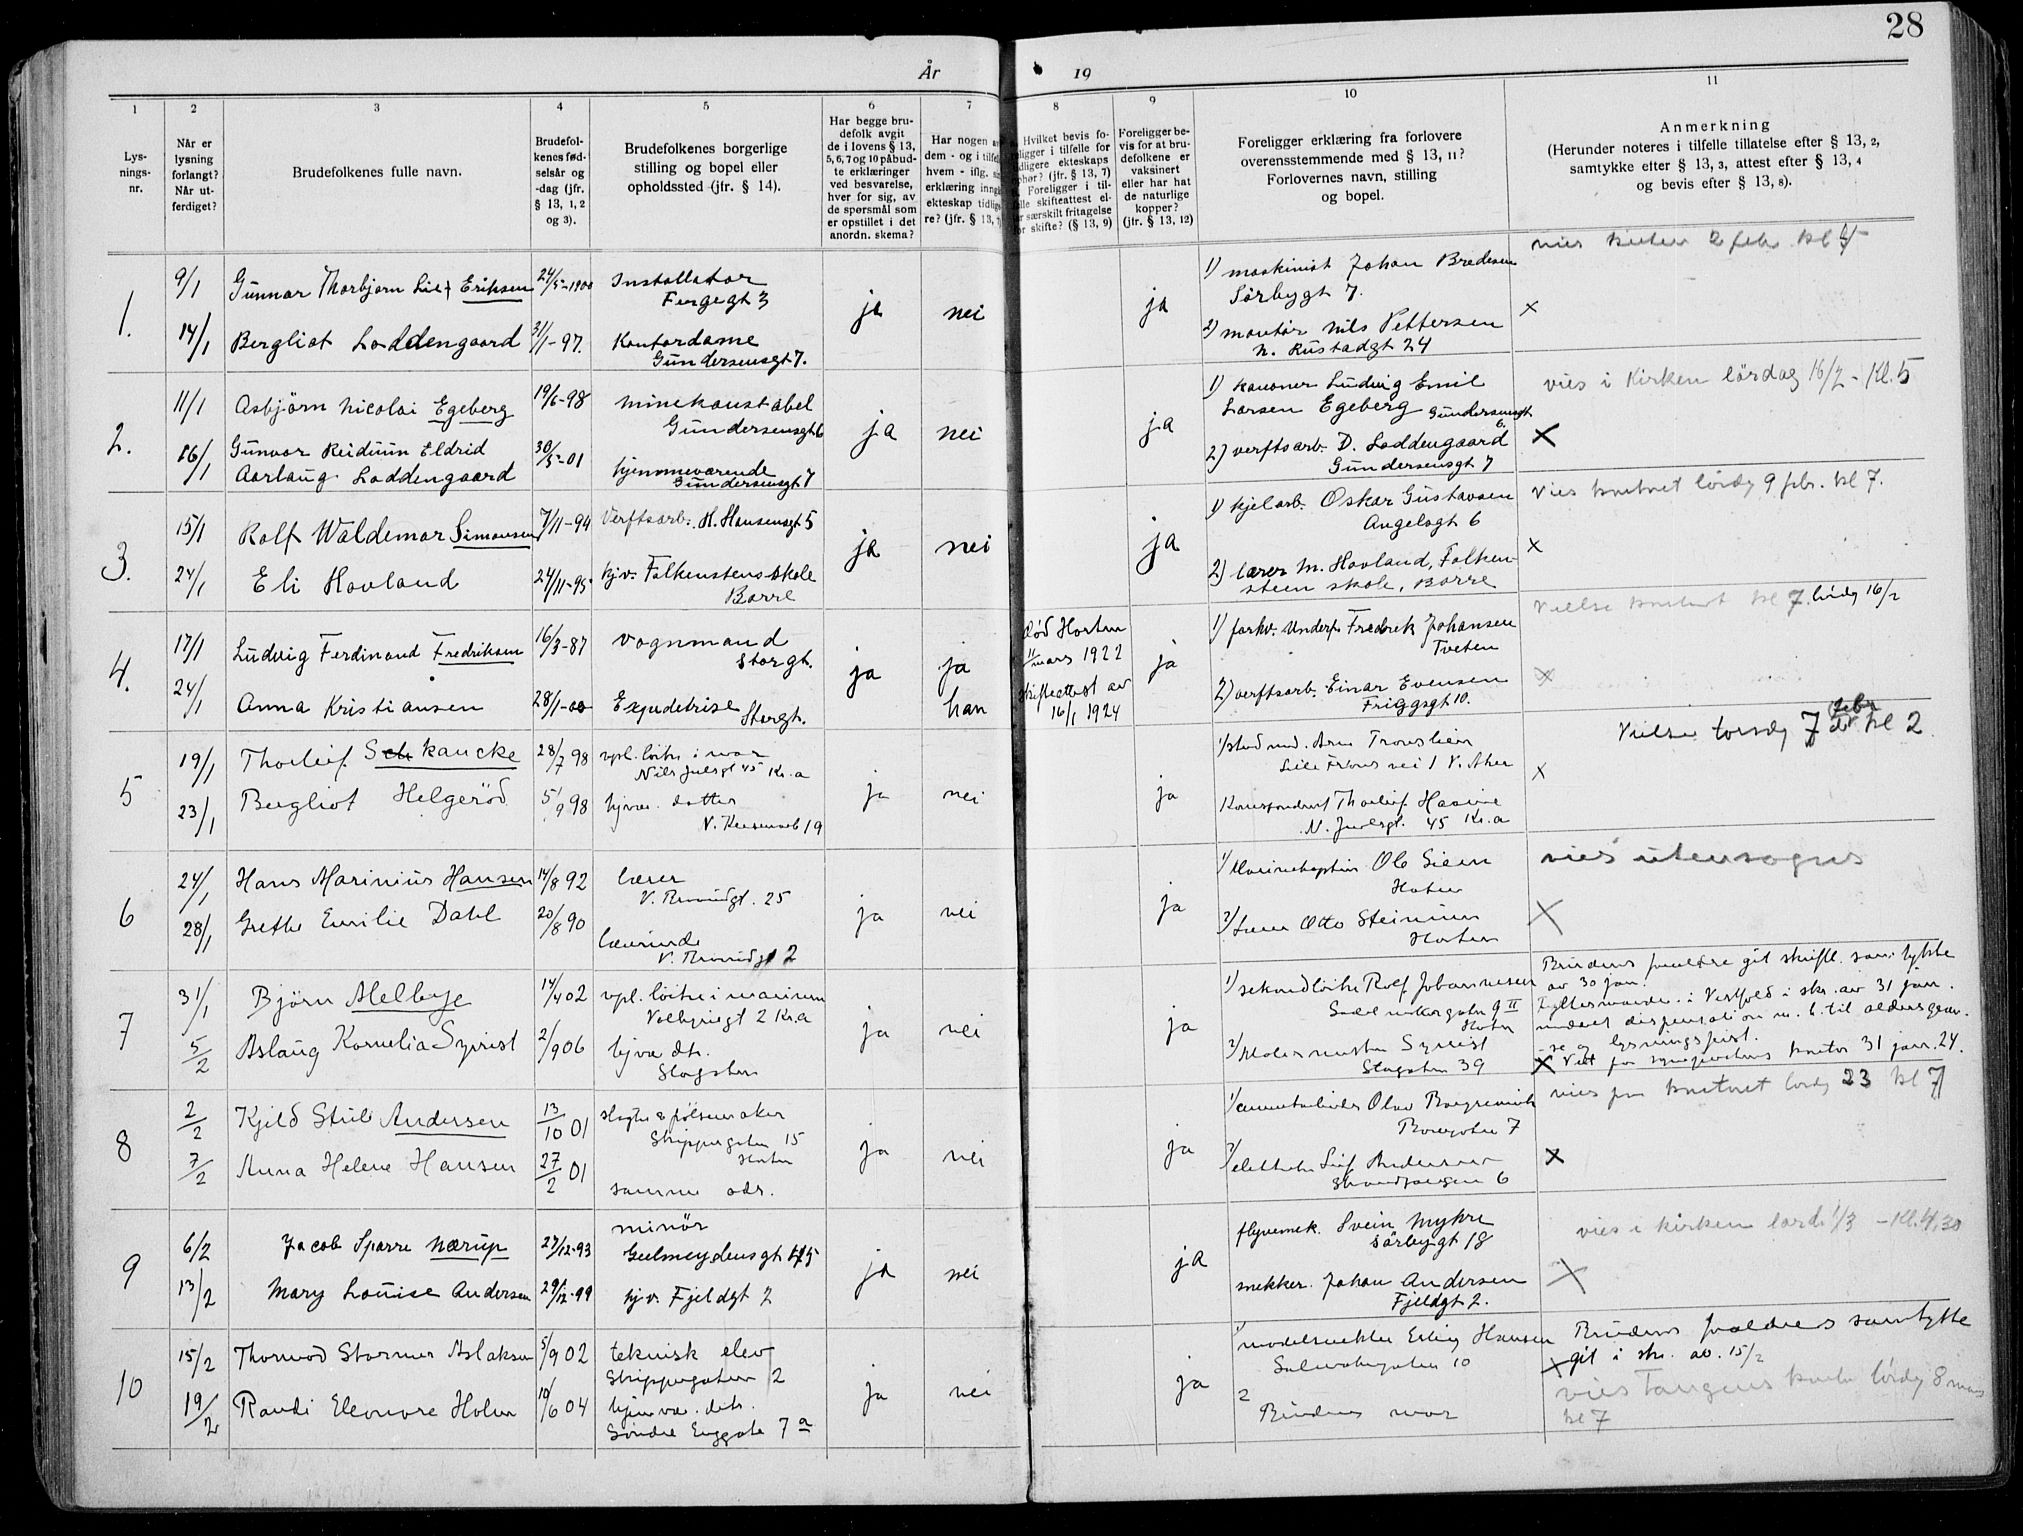 28
År 19
1 2 3 4 5 6 7 8 9 10 11
Lys-
nings-
nr.
Når er
lysning
forlangt?
Når ut-
ferdiget?
Brudefolkenes fulle navn.
Brudefol-
kenes fød-
selsår og
-dag (jfr.
§ 13, 1, 2
og 3).
Brudefolkenes borgerlige
stilling og bopel eller
opholdssted (jfr. § 14).
Har begge bru-
defolk avgit
de i lovens § 13,
5, 6, 7 og 10 påbud-
te erklæringer
ved besvarelse,
hver for sig, av
de spørsmål som
er opstillet i det
anordn. skema?
Har nogen
dem - og i tilfe
hvem - iflg.
erklæring inng
ekteskap tidlig
re? (jfr. § 13, 7
Hvilket bevis fo-
religger i tilfelle for
idligere ekteskaps
phør? (jfr. § 13, 7)
Foreligger i til-
lle skifteattest el-
r særskilt fritagelse
for skifte? (§ 13, 9)
Foreligger be-
vis for at bru-
defolkene er
vaksinert
eller har hat
de naturlige
kopper?
(jfr. § 13, 12)
Foreligger erklæring fra forlovere
overensstemmende med § 13, 11?
Forlovernes navn, stilling
og bopel.
Anmerkning
(Herunder noteres i tilfelle tillatelse efter § 13, 2,
samtykke efter § 13, 3, attest efter § 13, 4
og bevis efter § 13, 8).
1.
9/1
14/1
Gunnar Thorbjørn Eriksen
Bergliot Loddengaard
24/5-1900
31/1-97.
Installatør
Fergegt 3
Kontordame
Gundersensgt 7.
ja
nei
ja
1) maskinist Johan Bredesen
Sørbygt 7.
2) montør Nils Pettersen
N. Rustadgt 24
vies 2 febr. kl
x
2.
11/1
16/1
Asbjørn Nicolai Egeberg
Gunvor Reidunn Eldrid
Aarlaug Loddengaard
19/6-98
30/5-01
minekonstabel
Gundersensgt 6
hjemmeværende
Gundersensgt 7
ja
nei
ja
1) kanoner Ludvig Emil
Larsen Egeberg Gundersensgt
6.
2) verftsarb. D. Loddengaard
Gundersensgt 7
vies i Kirken lørdag 16/2 - Kl. 5
x
3.
15/1
24/1
Rolf Waldemar Simonsen
Eli Hovland
7/11-94
24/11-95
Verftsarb. H. Hansensgt 5
hjv. Falkenstens skole
Borre
ja
nei
ja
1) kjelarb. Oskar Gustavsen
Angelsgt 6
2) lærer M. Hovland, Falken-
steen skole, Borre
Vies kontoret lørdg 9 febr. kl 7.
x
4.
17/1
24/1
Ludvig Ferdinand Fredriksen
Anna Kristiansen
16/3-87
28/1-00
vognmand
Storgt.
Expeditrise
Storgt.
ja
ja
han
død Horten
11 mars 1922
skifteattest av
16/1 1924
ja
1) forhv. Underf. Fredrik Johansen
Tveten
2) verftsarb. Einar Evensen
Friggsgt 10.
Vielse kontoret kl 7 lørdg 16/2
x
5
19/1
23/1
Thorleif Skancke
Bergliot Helgerød
28/7 98
5/9 98
vpl. løitn. i mar
Nils Juelsgt 45 Kr.a
hjvær. datter
ja
nei
ja
1/ stud med. Arne
V. Aker
Korrespondent Thorleif
N. Juelsgt. 45 Kr.a
Vielse torsdg 7 febr kl 2
x
6
24/1
28/1
Hans Marinius Hansen
Grethe Emilie Dahl
14/8 92
20/8 90
lærer
25
lærerinde
2
ja
nei
ja
1/ Marinekaptein Ole Siem
Horten
2/ Lærer Otto Steinum
Horten
vies utensogns
x
7
31/1
5/2
Bjørn Melbye
Aslaug Kornelia Syvrist
14/4 02
2/9 06
vpl. løitn i marinen
2 Kr.a
hjvæ dtr.
Storgaten
ja
nei
ja
1/ sekondløitn Rolf Johannesen
9 II
Horten
2/ Malermester Syvrist
Storgaten 39
Brudens forældre git skriftl. samtykke
av 30 jan.
Fylkesmanden i Vestfold i skr. av 31 jan.
meddelt dispensation m. h. til aldersgræn-
se og lysningsfrist.
x Viet for kontor 31 jan. 24.
8
2/2
7/2
Kjeld Stub Andersen
Anna Helene Hansen
13/10 01
27/2 01
slagter & pølsemaker
Skippergaten 15
Horten
samme adr.
ja
nei
ja
1/ Olav
7
2/ Leif Andersen
6
vies paa kontoret lørdg 23 kl 7
x
9
6/2
13/2
Jacob Sparre Nærup
Mary Louise Andersen
27/12-93
29/12-99
minør
Geelmeydensgt
hjv. Fjeldgt 2
ja
nei
ja
flyvemek. Svein Myhre
Sørbygt 18
snekker. Johan Andersen
Fjeldgt 2.
vies i kirken lørd. 1/3 - Kl. 4,30
x
10
15/2
19/2
Thormod Størmer Aslaksen
Randi Eleonore Holm
5/9 02
10/6 04
teknisk elev
Skippergaten 2
hjemvæ. dtr.
Søndre Enggate 7 a
ja
nei
ja
1 modelsnekker Erling Hansen
10
2
Brudens mor
Brudens forældres samtykke
x git i skr. av. 15/2
vies Tangens lørdg 8 mars
kl 7